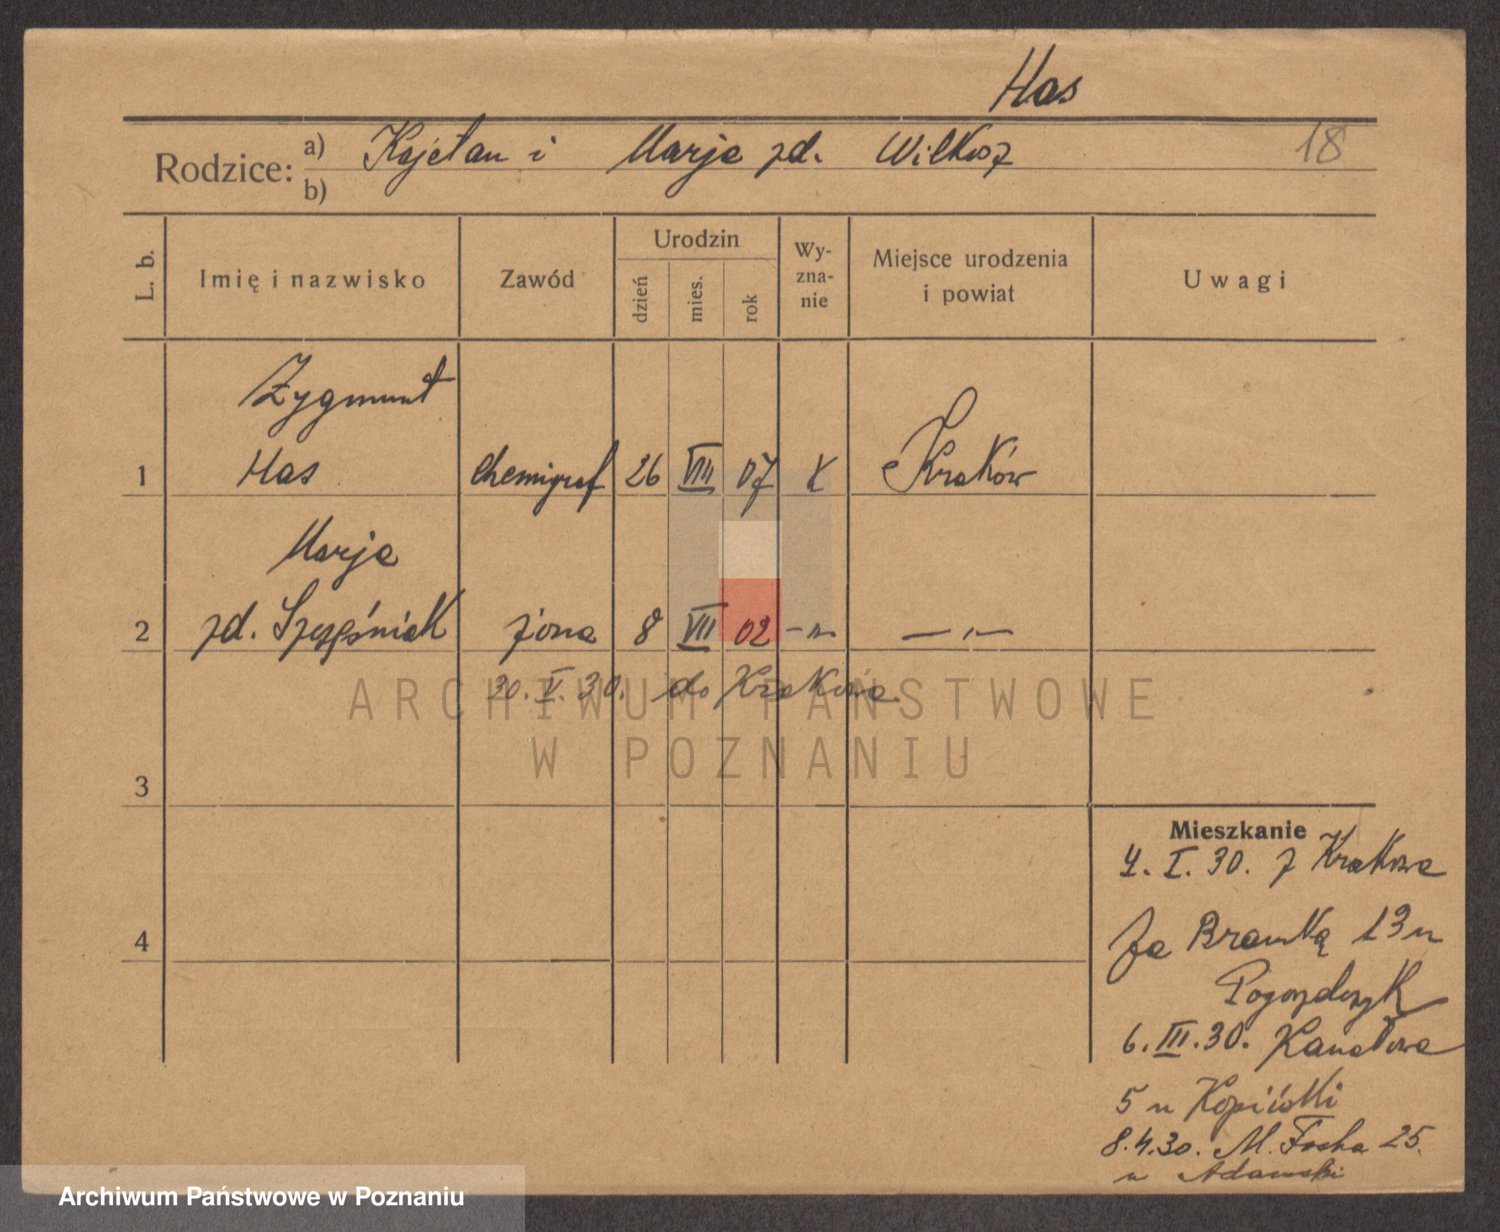 Has
Rodzice: a) Kajetan i Marja zd. Wilkosz 18
b)
L. b. Imię i nazwisko Zawód Urodzin dzień mies. rok Wy-zna-nie Miejsce urodzenia i powiat Uwagi
Zygmunt
1 Has chemigraf 26 VIII 07 K Kraków
Marja
2 zd. Szczęśniak żona 8 VII 02 -"- -"-
30. V. 30. do Krakowa
ARCHIWUM PAŃSTWOWE
W POZNANIU
3
Mieszkanie
4. I. 30. z Krakowa
4
Za Bramką 13 u
6. III. 30. Kanałowa
5 u
8.4.30. M. Focha 25.
u Adamski
Archiwum Państwowe w Poznaniu